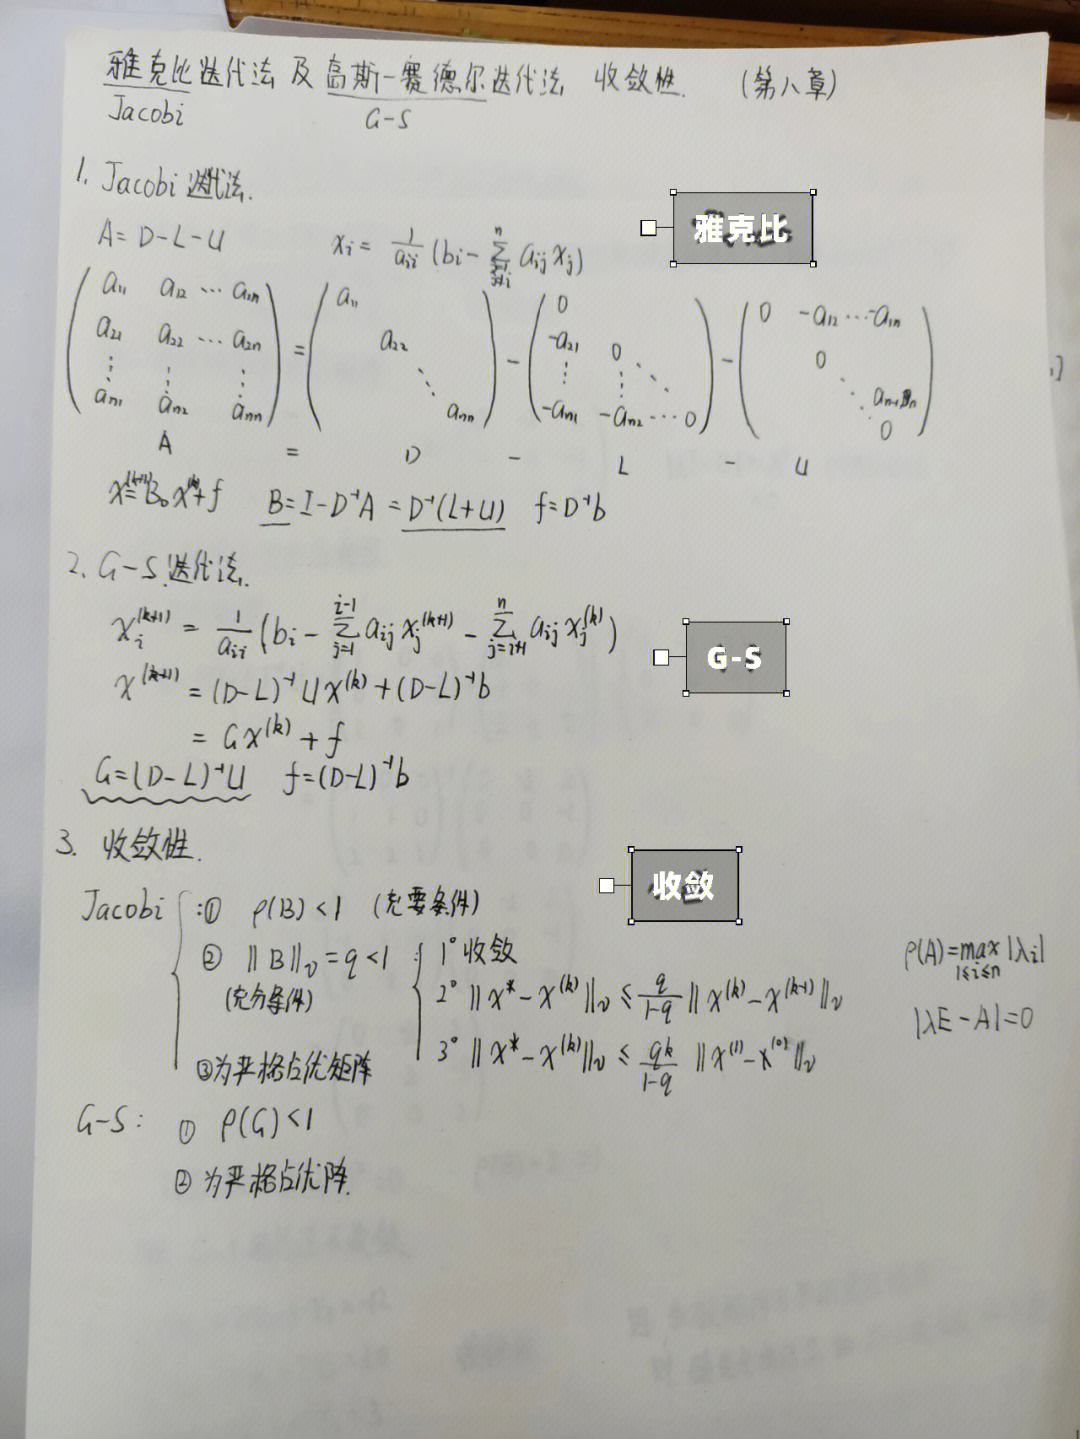 雅克比迭代法 及 高斯-赛德尔迭代法 收敛性. (第八章)
Jacobi G-S
1. Jacobi 迭代法.
雅克比
A = D-L-U xi = 1/aii (bi - Σ(j=1, j≠i)^n aij xj)
a11 a12 ⋯ a1n a11 0 0 -a12 ⋯ -a1n
a21 a22 ⋯ a2n = a22 - -a21 0 - 0
⋮ ⋮ ⋮ ⋱ ⋮ ⋮ ⋱ ⋱
an1 an2 ann ann -an1 -an2 ⋯ 0 0
A = D - L - U
x^(k+1) = B0 x^(k) + f B = I-D⁻¹A = D⁻¹(L+U) f=D⁻¹b
2. G-S 迭代法.
xi^(k+1) = 1/aii (bi - Σ(j=1)^(i-1) aij xj^(k+1) - Σ(j=i+1)^n aij xj^(k))
G-S
x^(k+1) = (D-L)⁻¹Ux^(k) + (D-L)⁻¹b
= Gx^(k) + f
G=(D-L)⁻¹U f=(D-L)⁻¹b
3. 收敛性.
收敛
Jacobi : ① ρ(B)<1 (充要条件)
② ‖B‖ᵥ = q <1 : 1° 收敛
(充分条件)
2° ‖x* - x^(k)‖ᵥ ≤ q/(1-q) ‖x^(k) - x^(k-1)‖ᵥ
3° ‖x* - x^(k)‖ᵥ ≤ qk/(1-q) ‖x^(1) - x^(0)‖ᵥ
ρ(A)=max(1≤i≤n) |λi|
|λE-A|=0
③为严格占优矩阵
G-S: ① ρ(G)<1
② 为严格占优阵.